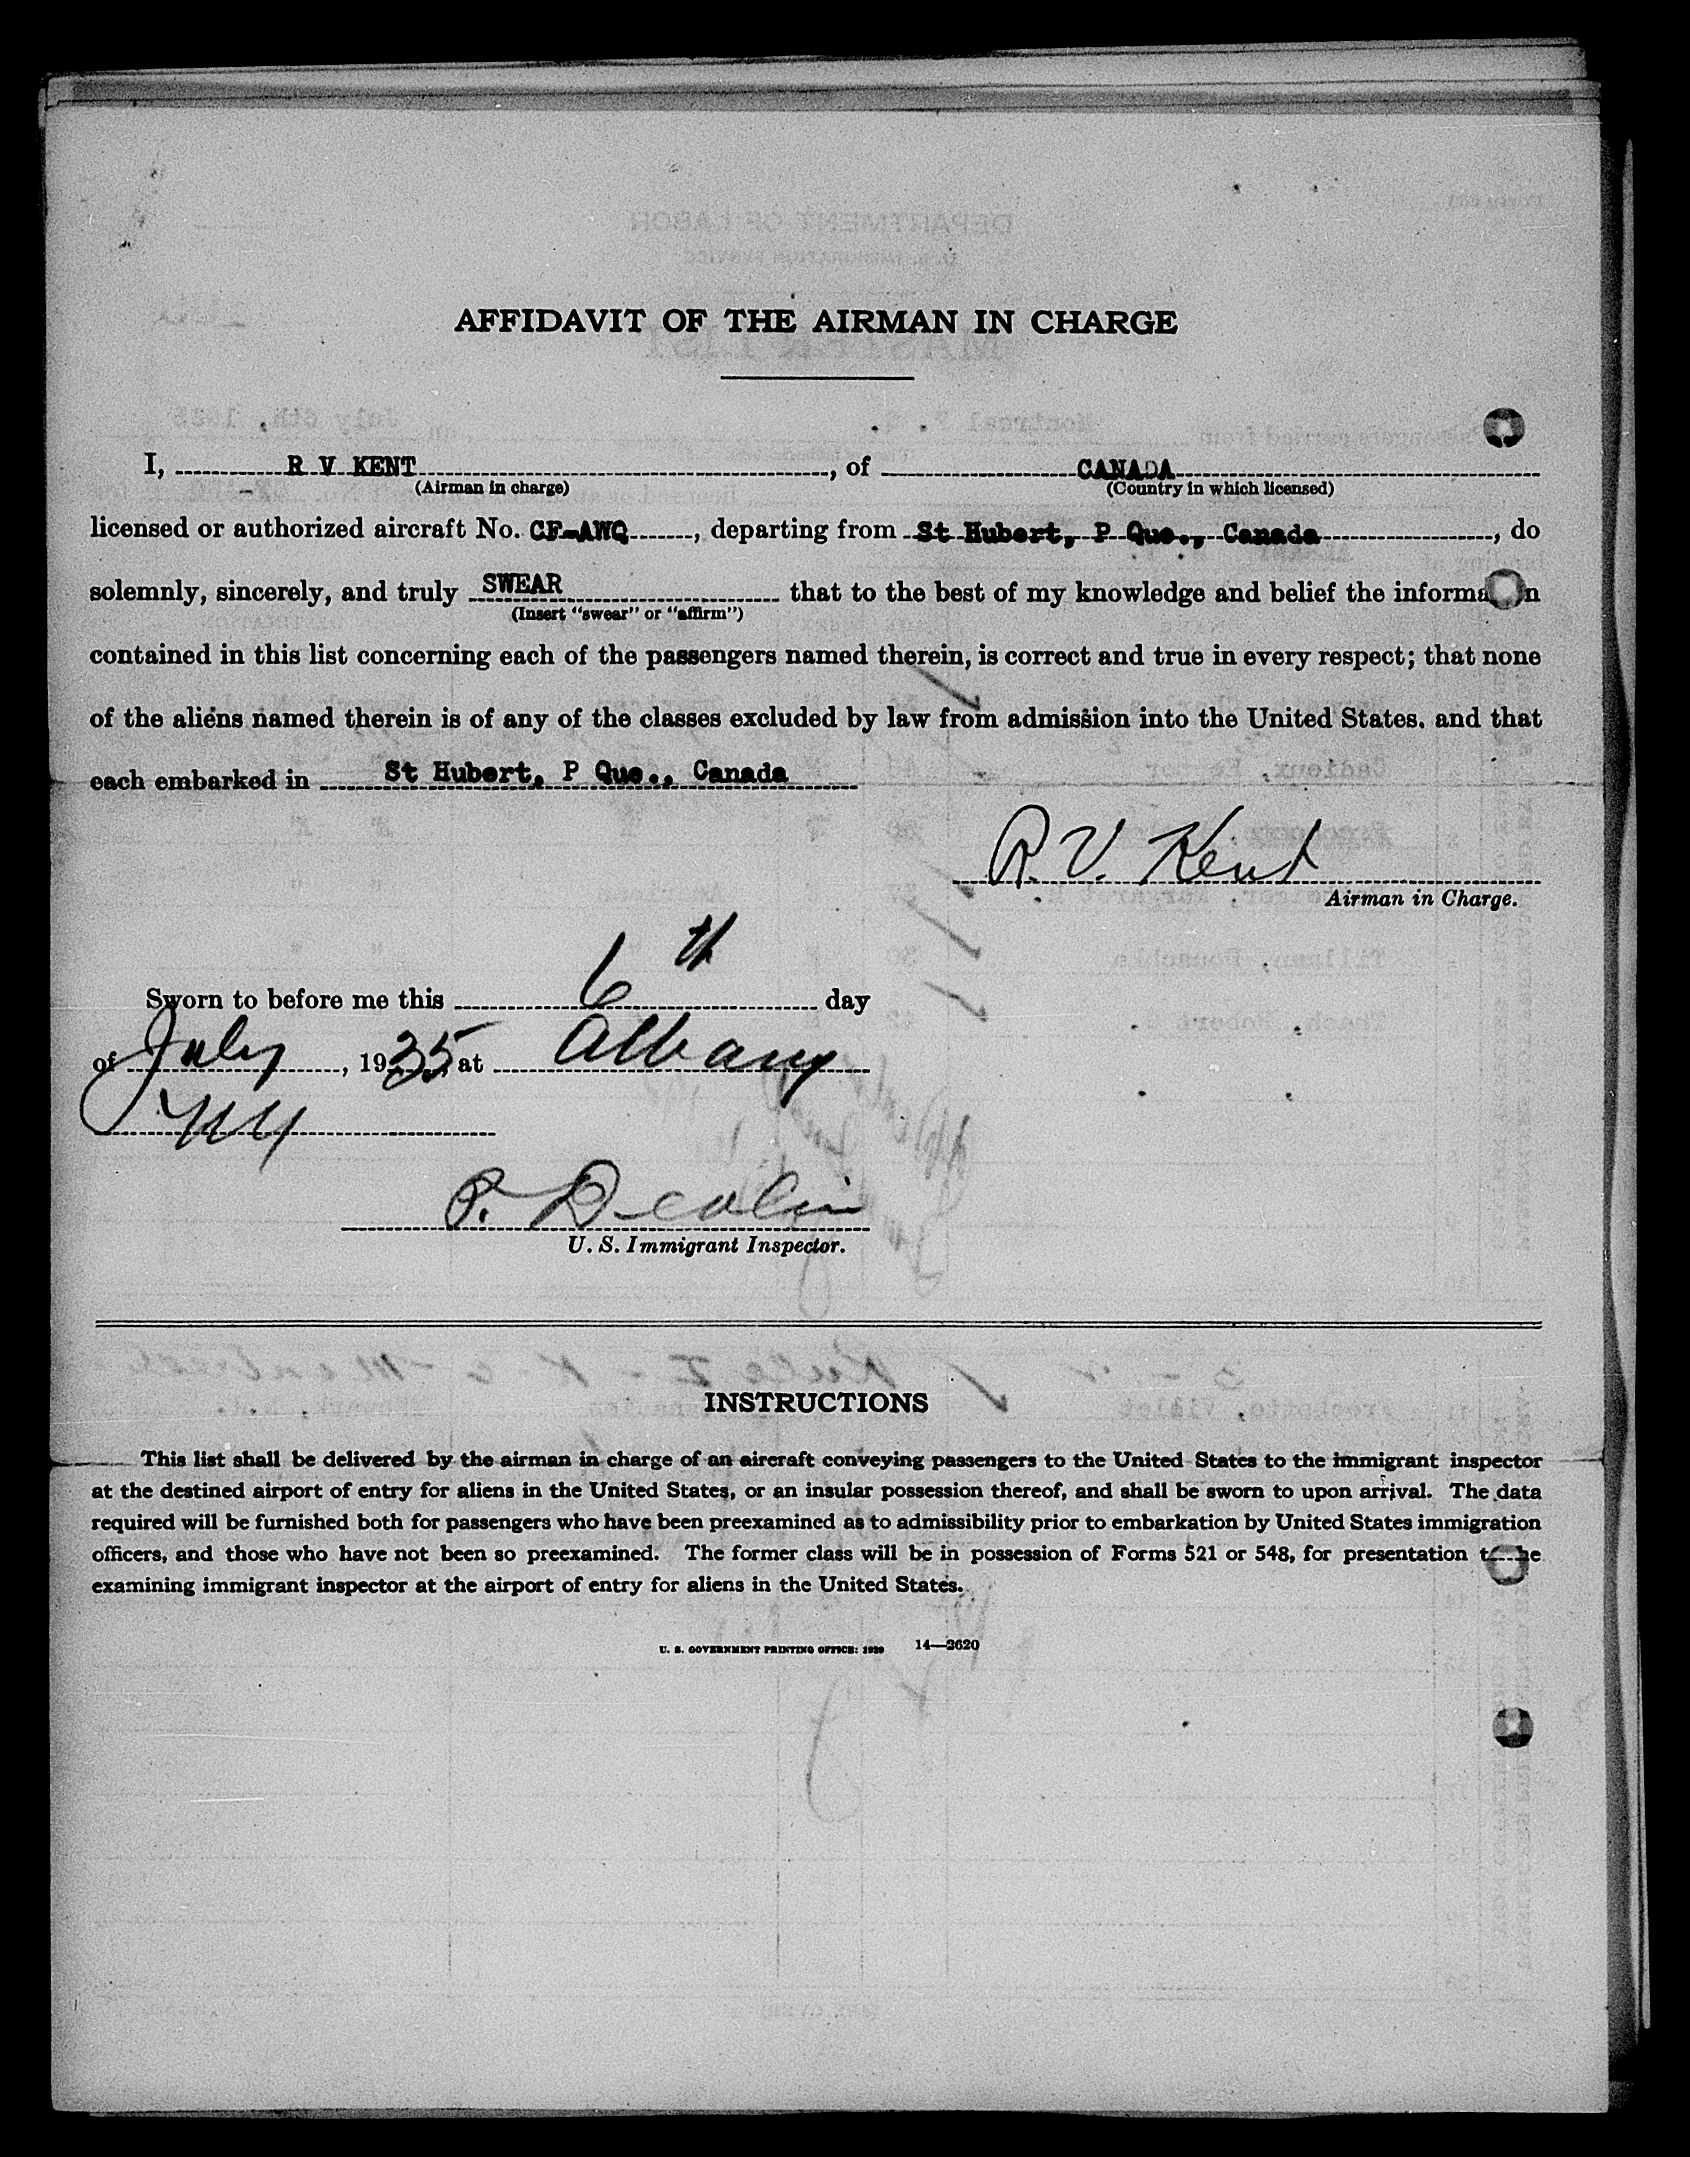 AFFIDAVIT OF THE AIRMAN IN CHARGE
I, R V KENT, of CANADA
(Airman in charge) (Country in which licensed)
licensed or authorized aircraft No. CF-AWQ, departing from St Hubert, P Que., Canada, do
solemnly, sincerely, and truly SWEAR that to the best of my knowledge and belief the information
(Insert "swear" or "affirm")
contained in this list concerning each of the passengers named therein, is correct and true in every respect; that none
of the aliens named therein is of any of the classes excluded by law from admission into the United States, and that
each embarked in St Hubert, P Que., Canada
R. V. Kent
Airman in Charge.
Sworn to before me this 6th day
of July, 1935, at Albany
NY
P. Devlin
U. S. Immigrant Inspector.
INSTRUCTIONS
This list shall be delivered by the airman in charge of an aircraft conveying passengers to the United States to the immigrant inspector
at the destined airport of entry for aliens in the United States, or an insular possession thereof, and shall be sworn to upon arrival. The data
required will be furnished both for passengers who have been preexamined as to admissibility prior to embarkation by United States immigration
officers, and those who have not been so preexamined. The former class will be in possession of Forms 521 or 548, for presentation to the
examining immigrant inspector at the airport of entry for aliens in the United States.
U. S. GOVERNMENT PRINTING OFFICE: 1929 14—2620